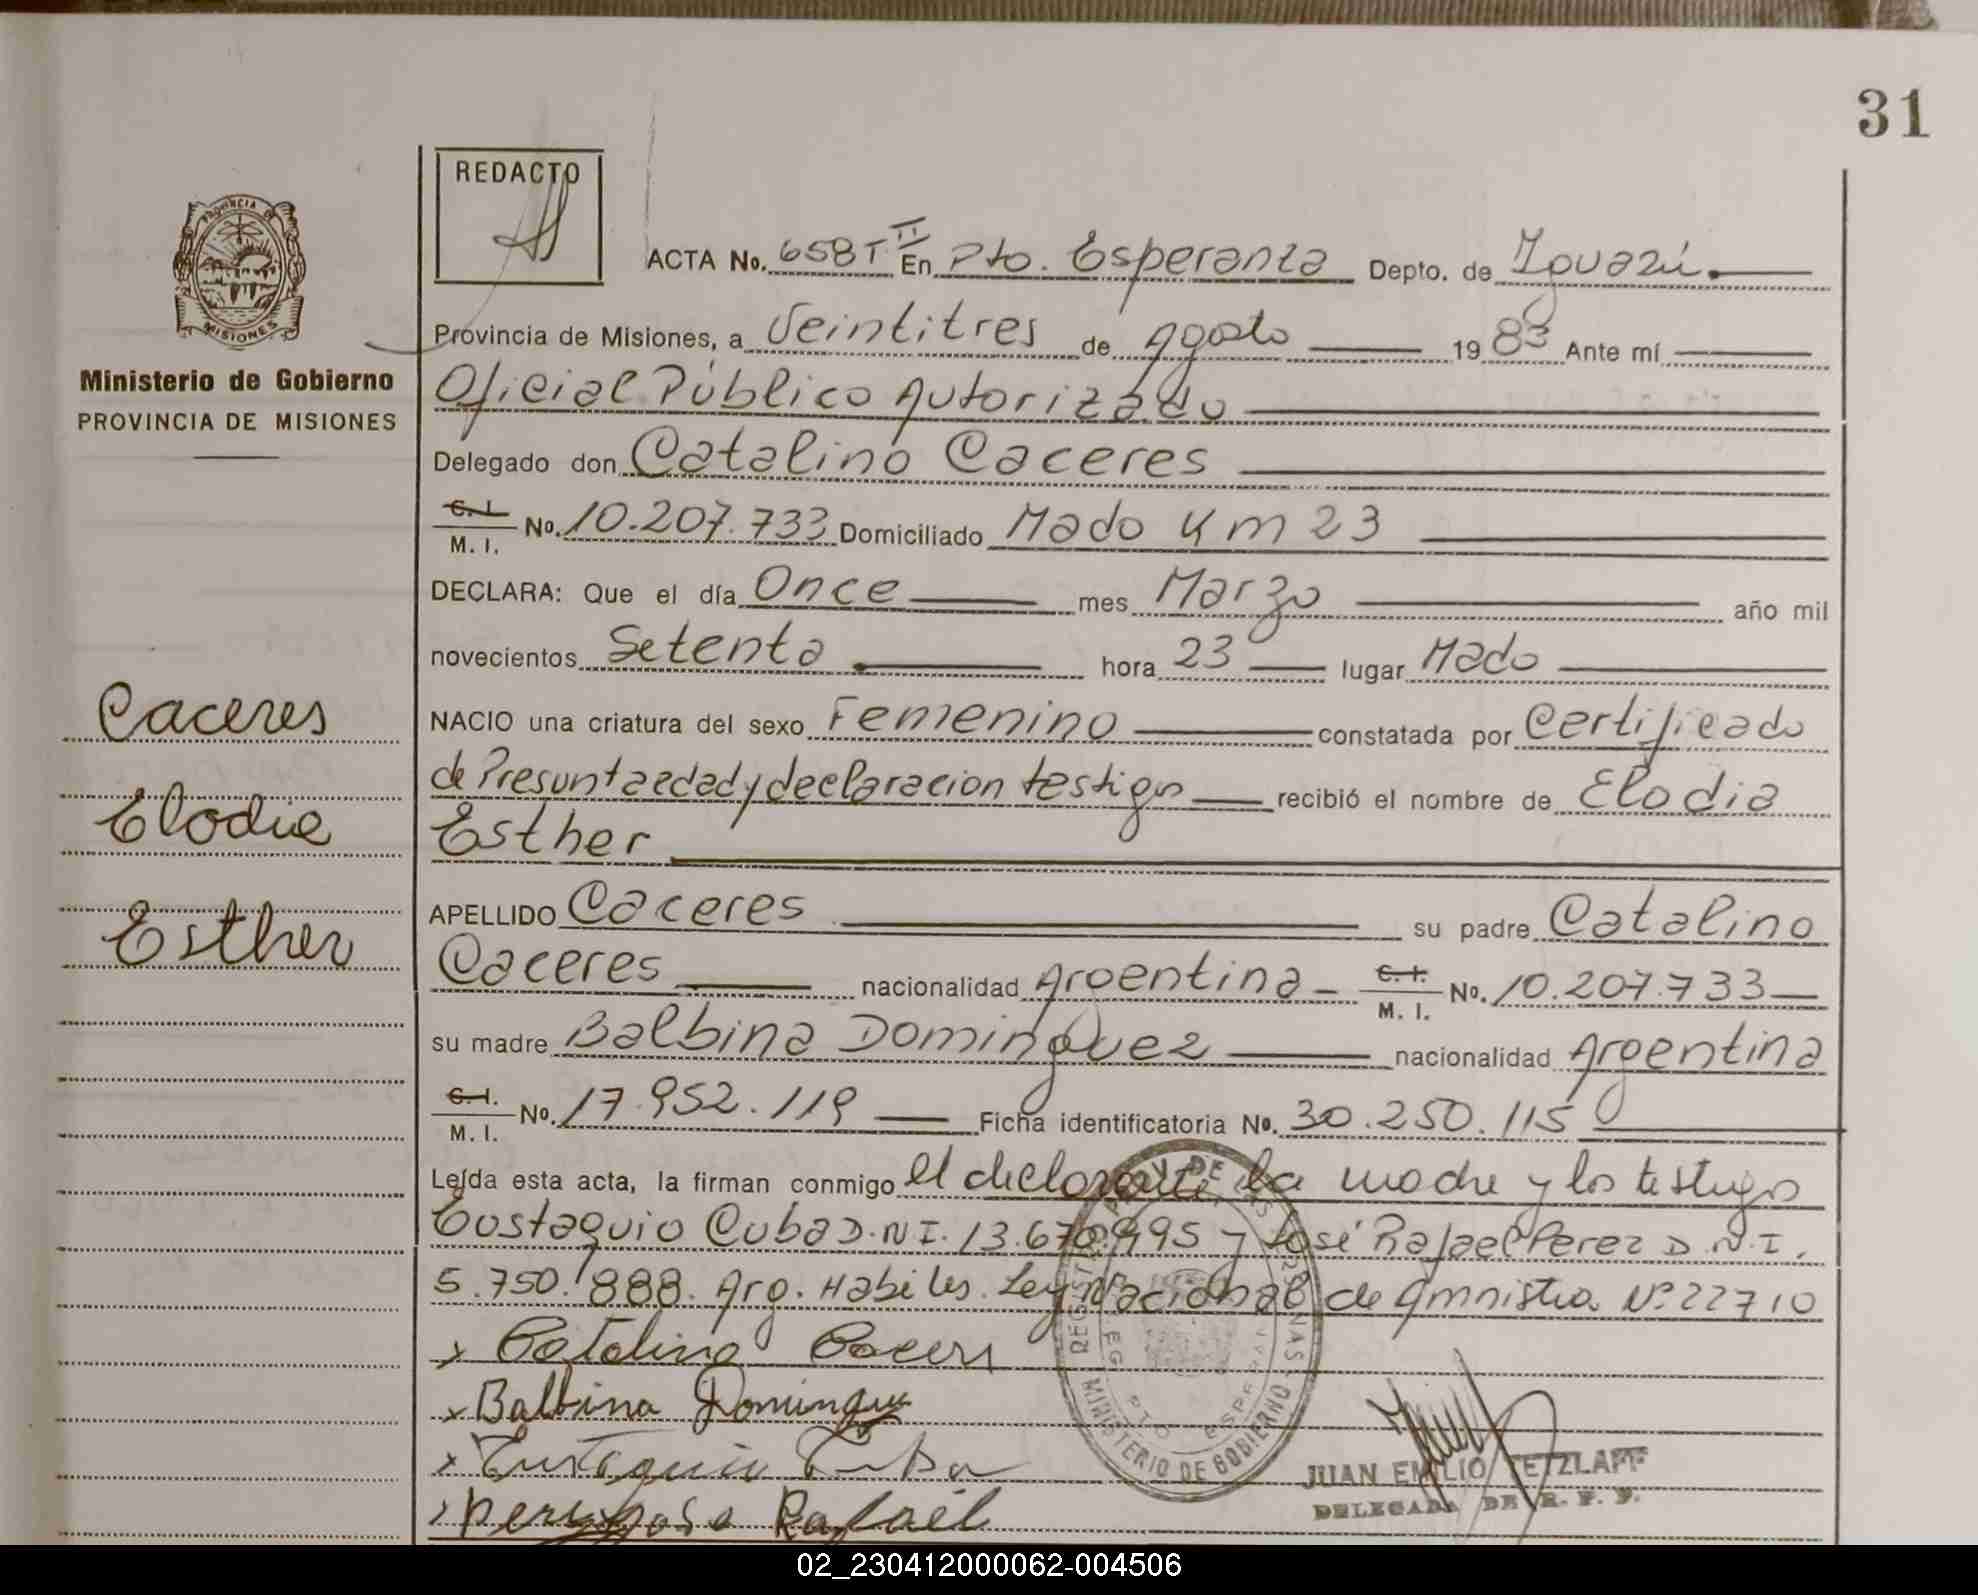 31
REDACTO
PROVINCIA DE
MISIONES
ACTA No. 658 T II En Pto. Esperanza Depto. de Iguazú.
Provincia de Misiones, a Veintitres de Agosto 1983 Ante mí
Ministerio de Gobierno
PROVINCIA DE MISIONES
Oficial Público Autorizado
Delegado don Catalino Caceres
C. I. M. I. No. 10.207.733 Domiciliado Mado Km 23
DECLARA: Que el día Once mes Marzo año mil
novecientos Setenta hora 23 lugar Mado
Caceres
Elodia
Esther
NACIO una criatura del sexo Femenino constatada por Certificado
de Presunta edad y declaracion testigo recibió el nombre de Elodia
Esther
APELLIDO Caceres su padre Catalino
Caceres nacionalidad Argentina C. I. M. I. No. 10.207.733
su madre Balbina Dominguez nacionalidad Argentina
C. I. M. I. No. 17.952.119 Ficha identificatoria No. 30.250.115
Leída esta acta, la firman conmigo el declarante la madre y los testigos
Eustaquio Cuba D.N.I. 13.670.995 y José Rafael Perez D.N.I.
5.750.888. Arg. Habiles. Ley Nacional de Amnistia Nº 22710
x Catalino Caceres
x Balbina Dominguez
x
x Perez Jose Rafael
MINISTERIO DE GOBIERNO
PTO ESPERANZA
JUAN EMILIO TETZLAFF
DELEGADO DE R. P. P.
02_230412000062-004506